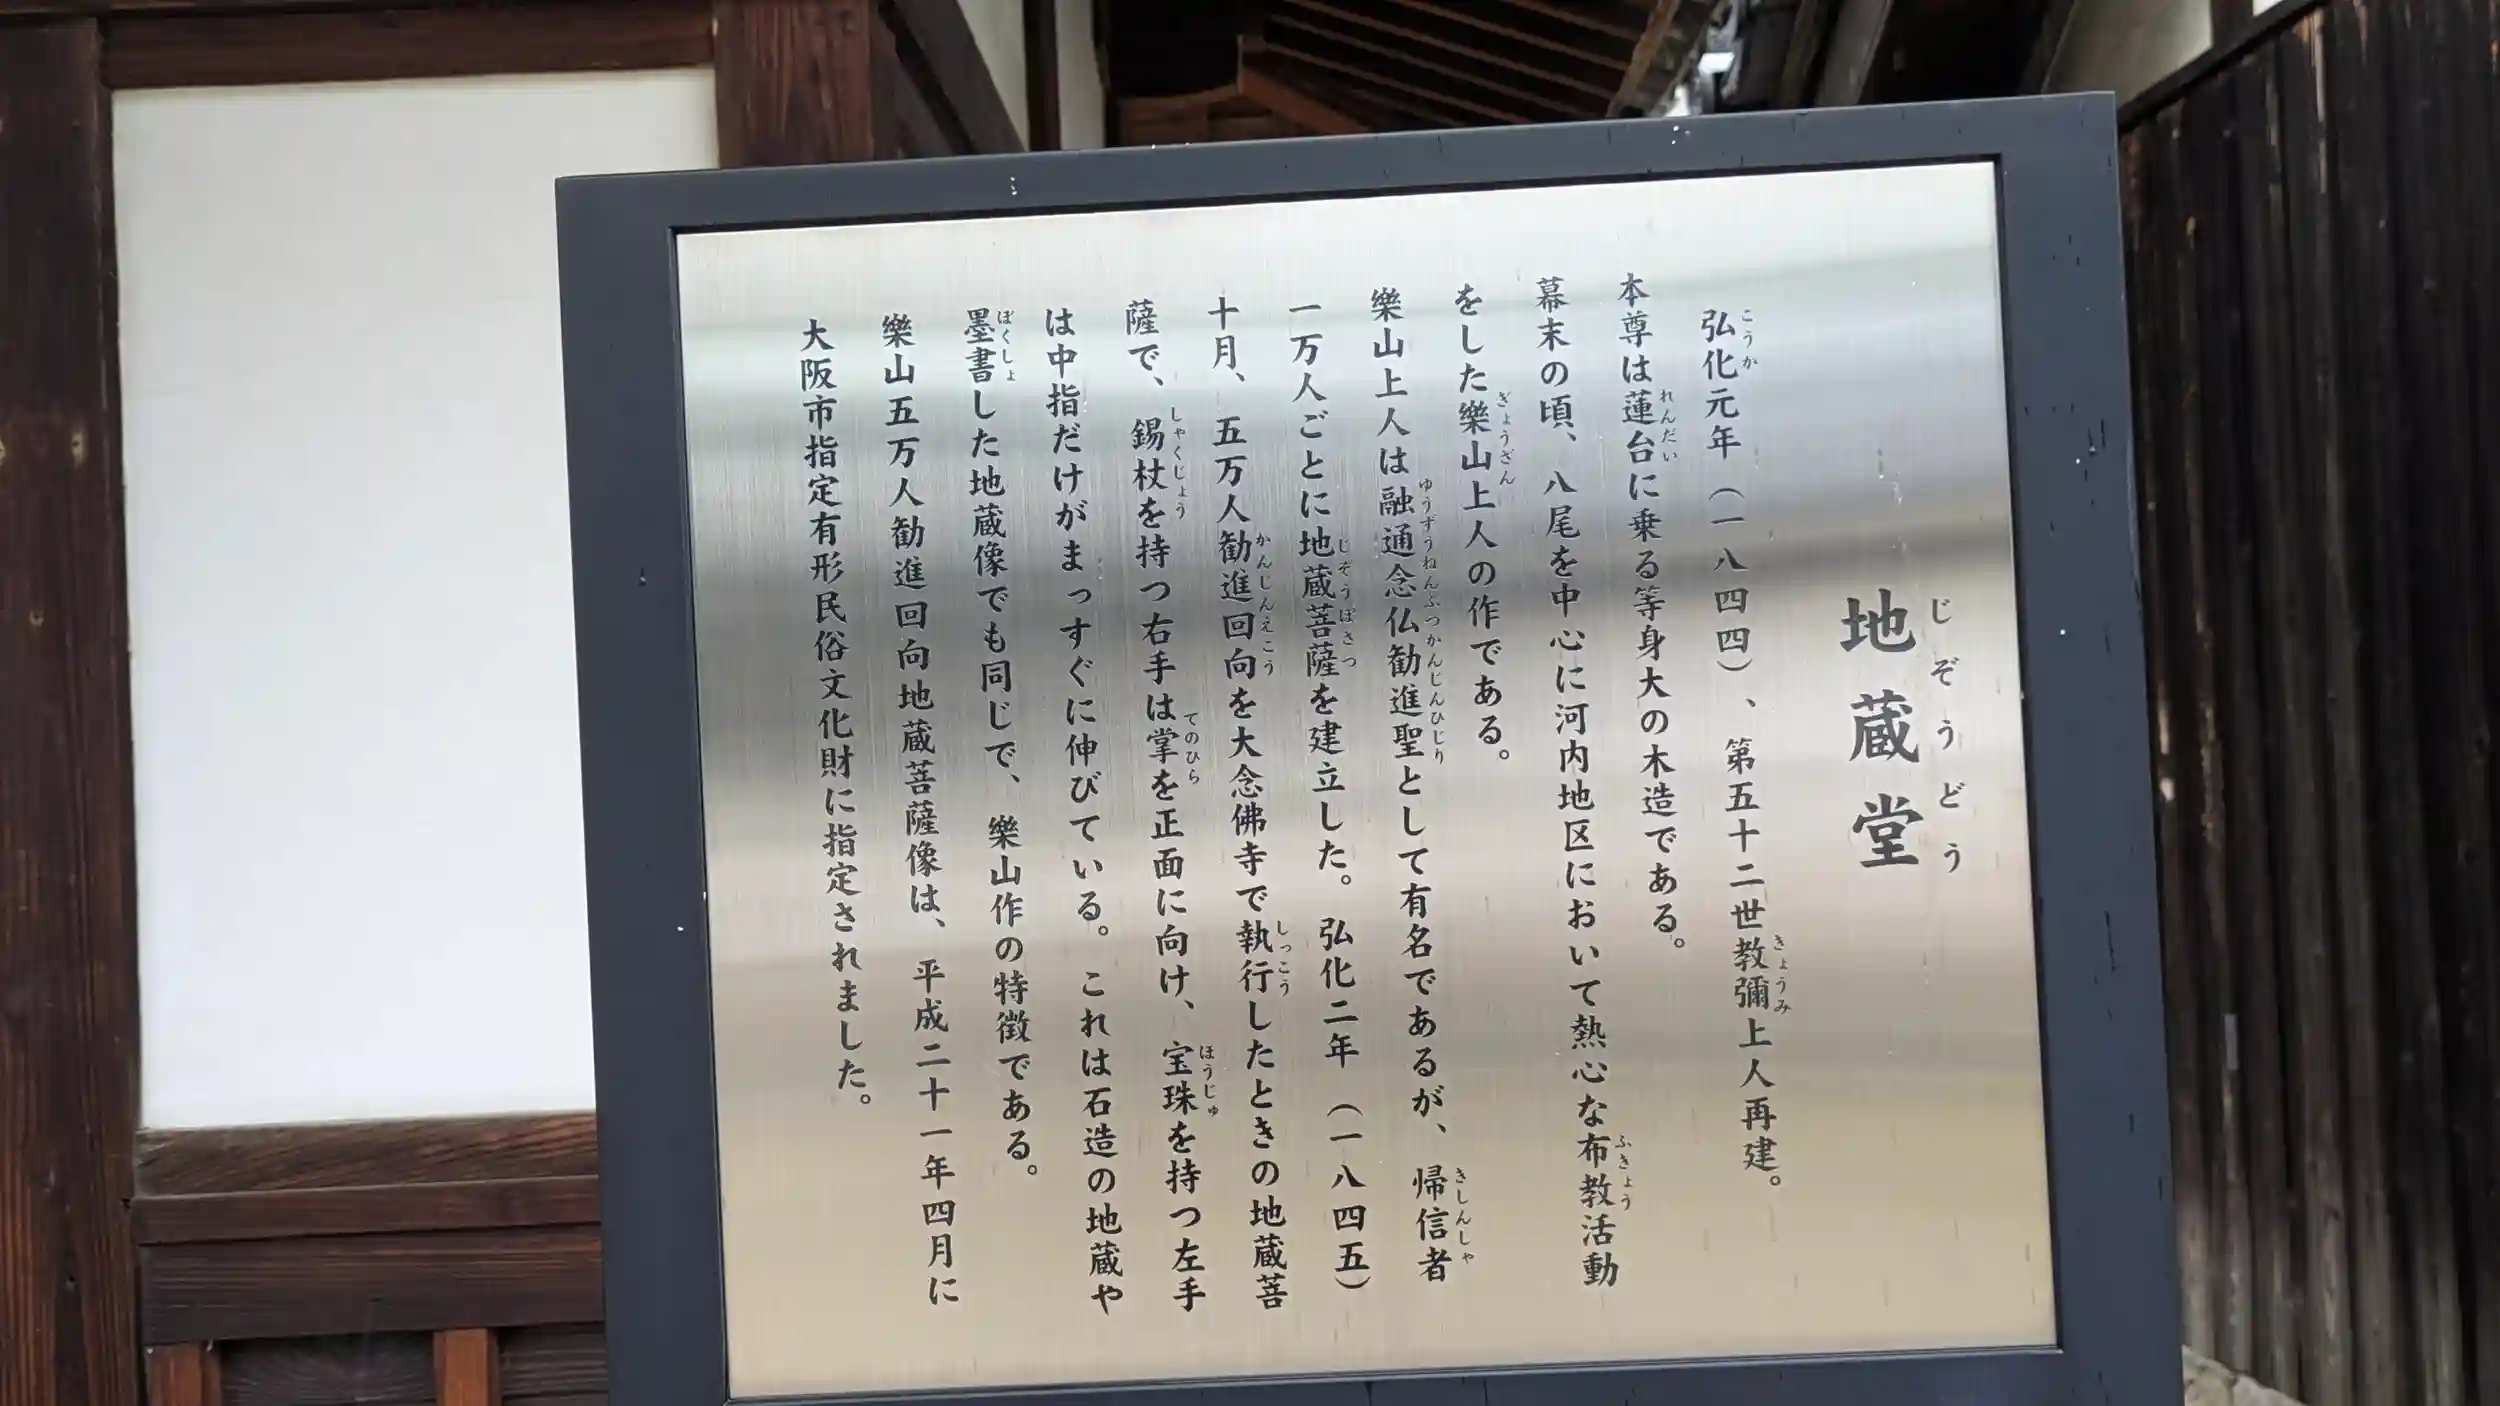 地蔵堂
じぞうどう
弘化元年（一八四四）、第五十二世教彌上人再建。
こうか
きょうみ
本尊は蓮台に乗る等身大の木造である。
れんだい
幕末の頃、八尾を中心に河内地区において熱心な布教活動
ふきょう
をした樂山上人の作である。
ぎょうざん
樂山上人は融通念仏勧進聖として有名であるが、帰信者
ゆうずうねんぶつかんじんひじり
きしんしゃ
一万人ごとに地蔵菩薩を建立した。弘化二年（一八四五）
じぞうぼさつ
十月、五万人勧進回向を大念佛寺で執行したときの地蔵菩
かんじんえこう
しっこう
薩で、錫杖を持つ右手は掌を正面に向け、宝珠を持つ左手
しゃくじょう
てのひら
ほうじゅ
は中指だけがまっすぐに伸びている。これは石造の地蔵や
墨書した地蔵像でも同じで、樂山作の特徴である。
ぼくしょ
樂山五万人勧進回向地蔵菩薩像は、平成二十一年四月に
大阪市指定有形民俗文化財に指定されました。